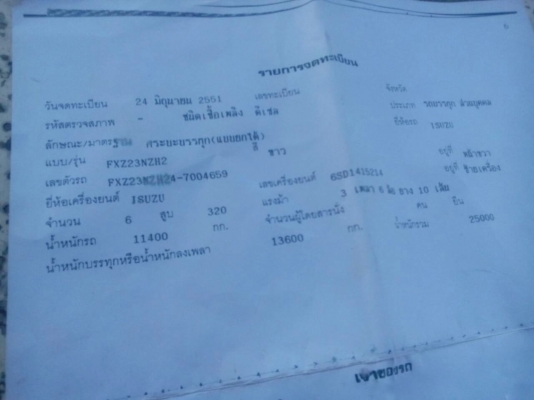 รายการจดทะเบียน
วันจดทะเบียน 24 มิถุนายน 2551 เลขทะเบียน จังหวัด
รหัสตรวจสภาพ - ชนิดเชื้อเพลิง ดีเซล ประเภท รถบรรทุก ส่วนบุคคล
ลักษณะ/มาตรฐาน กระบะบรรทุก(แบบยกได้) ยี่ห้อรถ ISUZU
แบบ/รุ่น FXZ23NZH2 สี ขาว
เลขตัวรถ FXZ23NZH24-7004659 เลขเครื่องยนต์ 6SD1415214 อยู่ที่
ยี่ห้อเครื่องยนต์ ISUZU 3 เพลา 6 ล้อ ยาง 10 เส้น อยู่ที่
จำนวน 6 สูบ 320 แรงม้า จำนวนผู้โดยสารนั่ง คน ยืน
น้ำหนักรถ 11400 กก. กก. น้ำหนักรวม 25000
น้ำหนักบรรทุกหรือน้ำหนักลงเพลา 13600
เจ้าของรถ